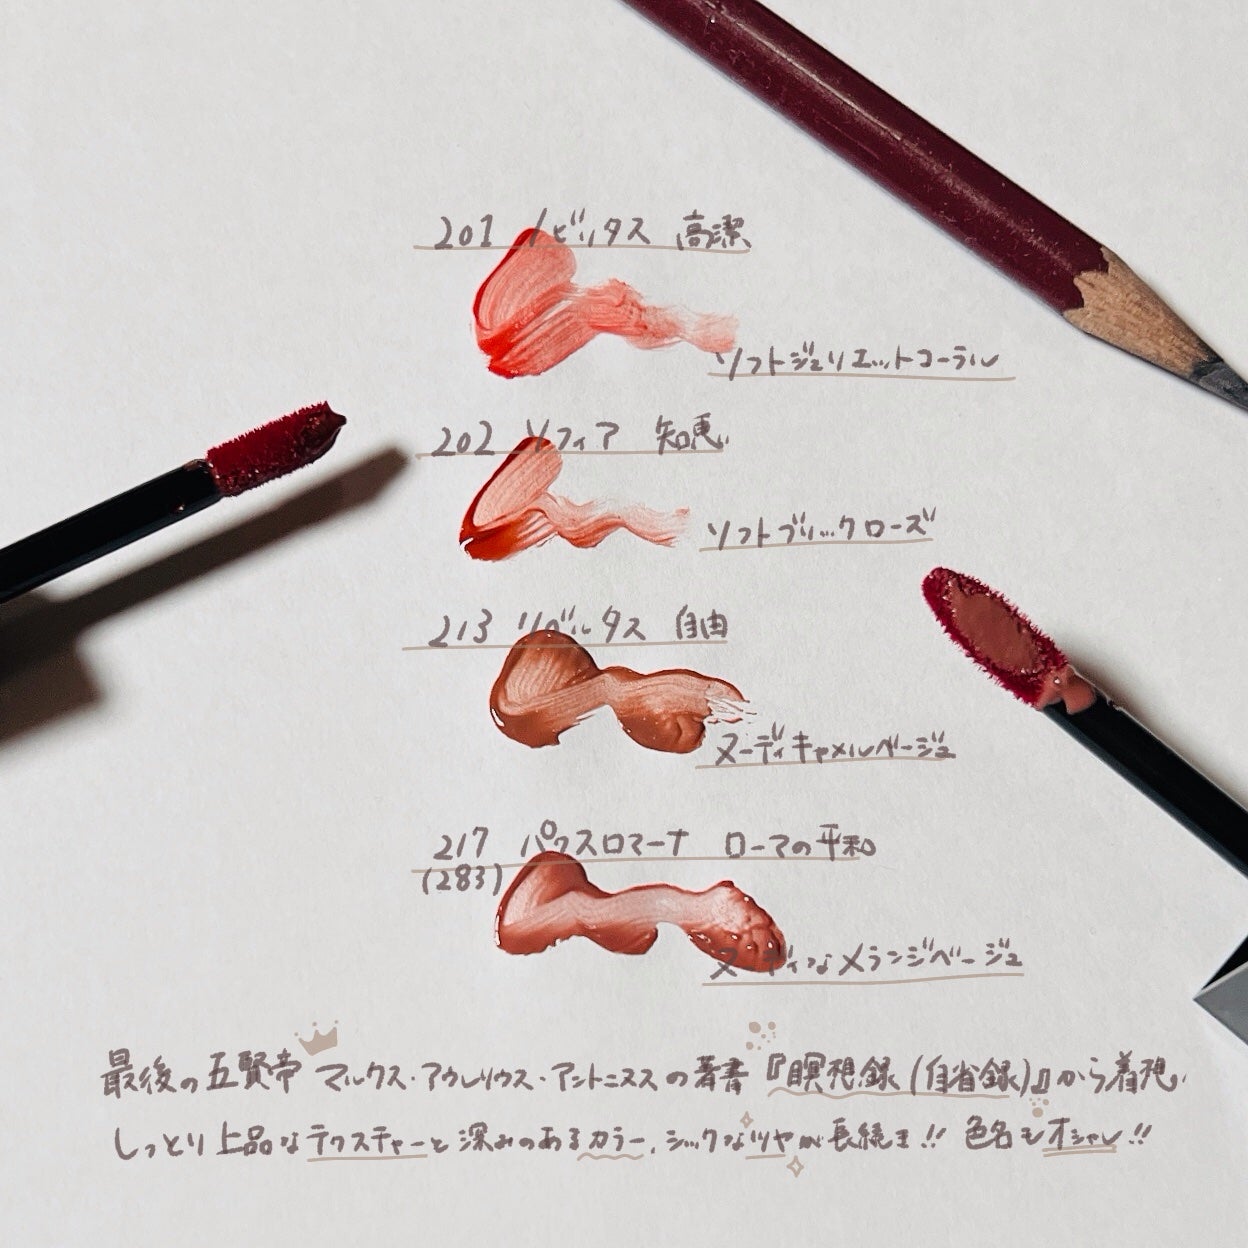 201 ノビリタス 高潔
ソフトジュリエットコーラル
202 ソフィア 知恵
ソフトブリックローズ
213 リベルタス 自由
ヌーディキャメルベージュ
217 パクスロマーナ ローマの平和
(283)
ヌーディなメランジベージュ
最後の五賢帝 マルクス・アウレリウス・アントニヌスの著書『瞑想録(自省録)』から着想、
しっとり上品なテクスチャーと深みのあるカラー、シックなツヤが長続き!! 色名もオシャレ!!